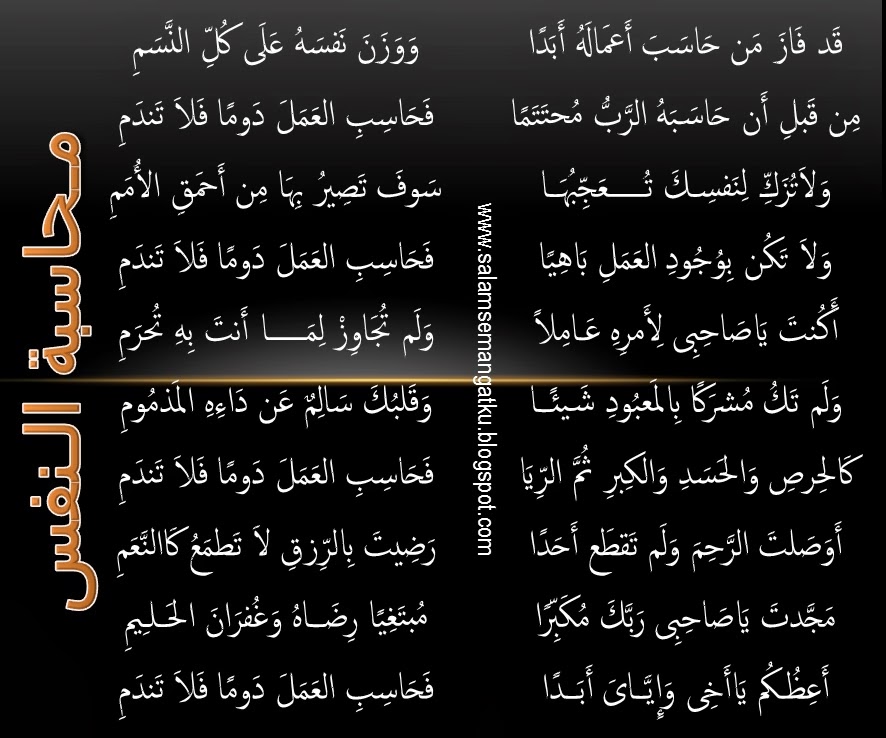 محاسبة النفس
قَد فَازَ مَن حَاسَبَ أَعمَالَهُ أَبَدًا وَوَزَنَ نَفسَهُ عَلَى كُلِّ النَّسَمِ
مِن قَبلِ أَن حَاسَبَهُ الرَّبُّ مُحتَتَمًا فَحَاسِبِ العَمَلَ دَومًا فَلاَ تَندَمِ
وَلاَتُزَكِّ لِنَفسِـكَ تُـــــعَجِّبُهَـا سَوفَ تَصِيرُ بِهَا مِن أَحمَقِ الأُمَمِ
وَلاَ تَكُن بِوُجُودِ العَمَلِ بَاهِيًا فَحَاسِبِ العَمَلَ دَومًا فَلاَ تَندَمِ
أَكُنتَ يَاصَاحِبِى لِأَمرِهِ عَـامِلاً وَلَم تُجَاوِزْ لِمَـــــا أَنتَ بِهِ تُحرَمِ
وَلَم تَكُ مُشرَكًا بِالمَعبُودِ شَـيئًـا وَقَلبُكَ سَالِمٌ عَن دَاءِهِ المَذمُومِ
كَالحِرصِ وَالحَسَدِ وَالكِبرِ ثُمَّ الرِّيَا فَحَاسِبِ العَمَلَ دَومًا فَلاَ تَندَمِ
أَوَصَلتَ الرَّحِمَ وَلَم تَقطَع أَحَدًا رَضِيتَ بِالرِّزقِ لاَ تَطمَعُ كَاالنَّعَمِ
مَجَّدتَ يَاصَاحِبِى رَبَّكَ مُكَبِّرًا مُبتَغِيًا رِضَـاهُ وَغُفرَانَ الحَـلِـيمِ
أَعِظُكُم يَاأَخِى وَإِيَّـاىَ أَبَـدًا فَحَاسِبِ العَمَلَ دَومًا فَلاَ تَندَمِ
www.salamsemangatku.blogspot.com